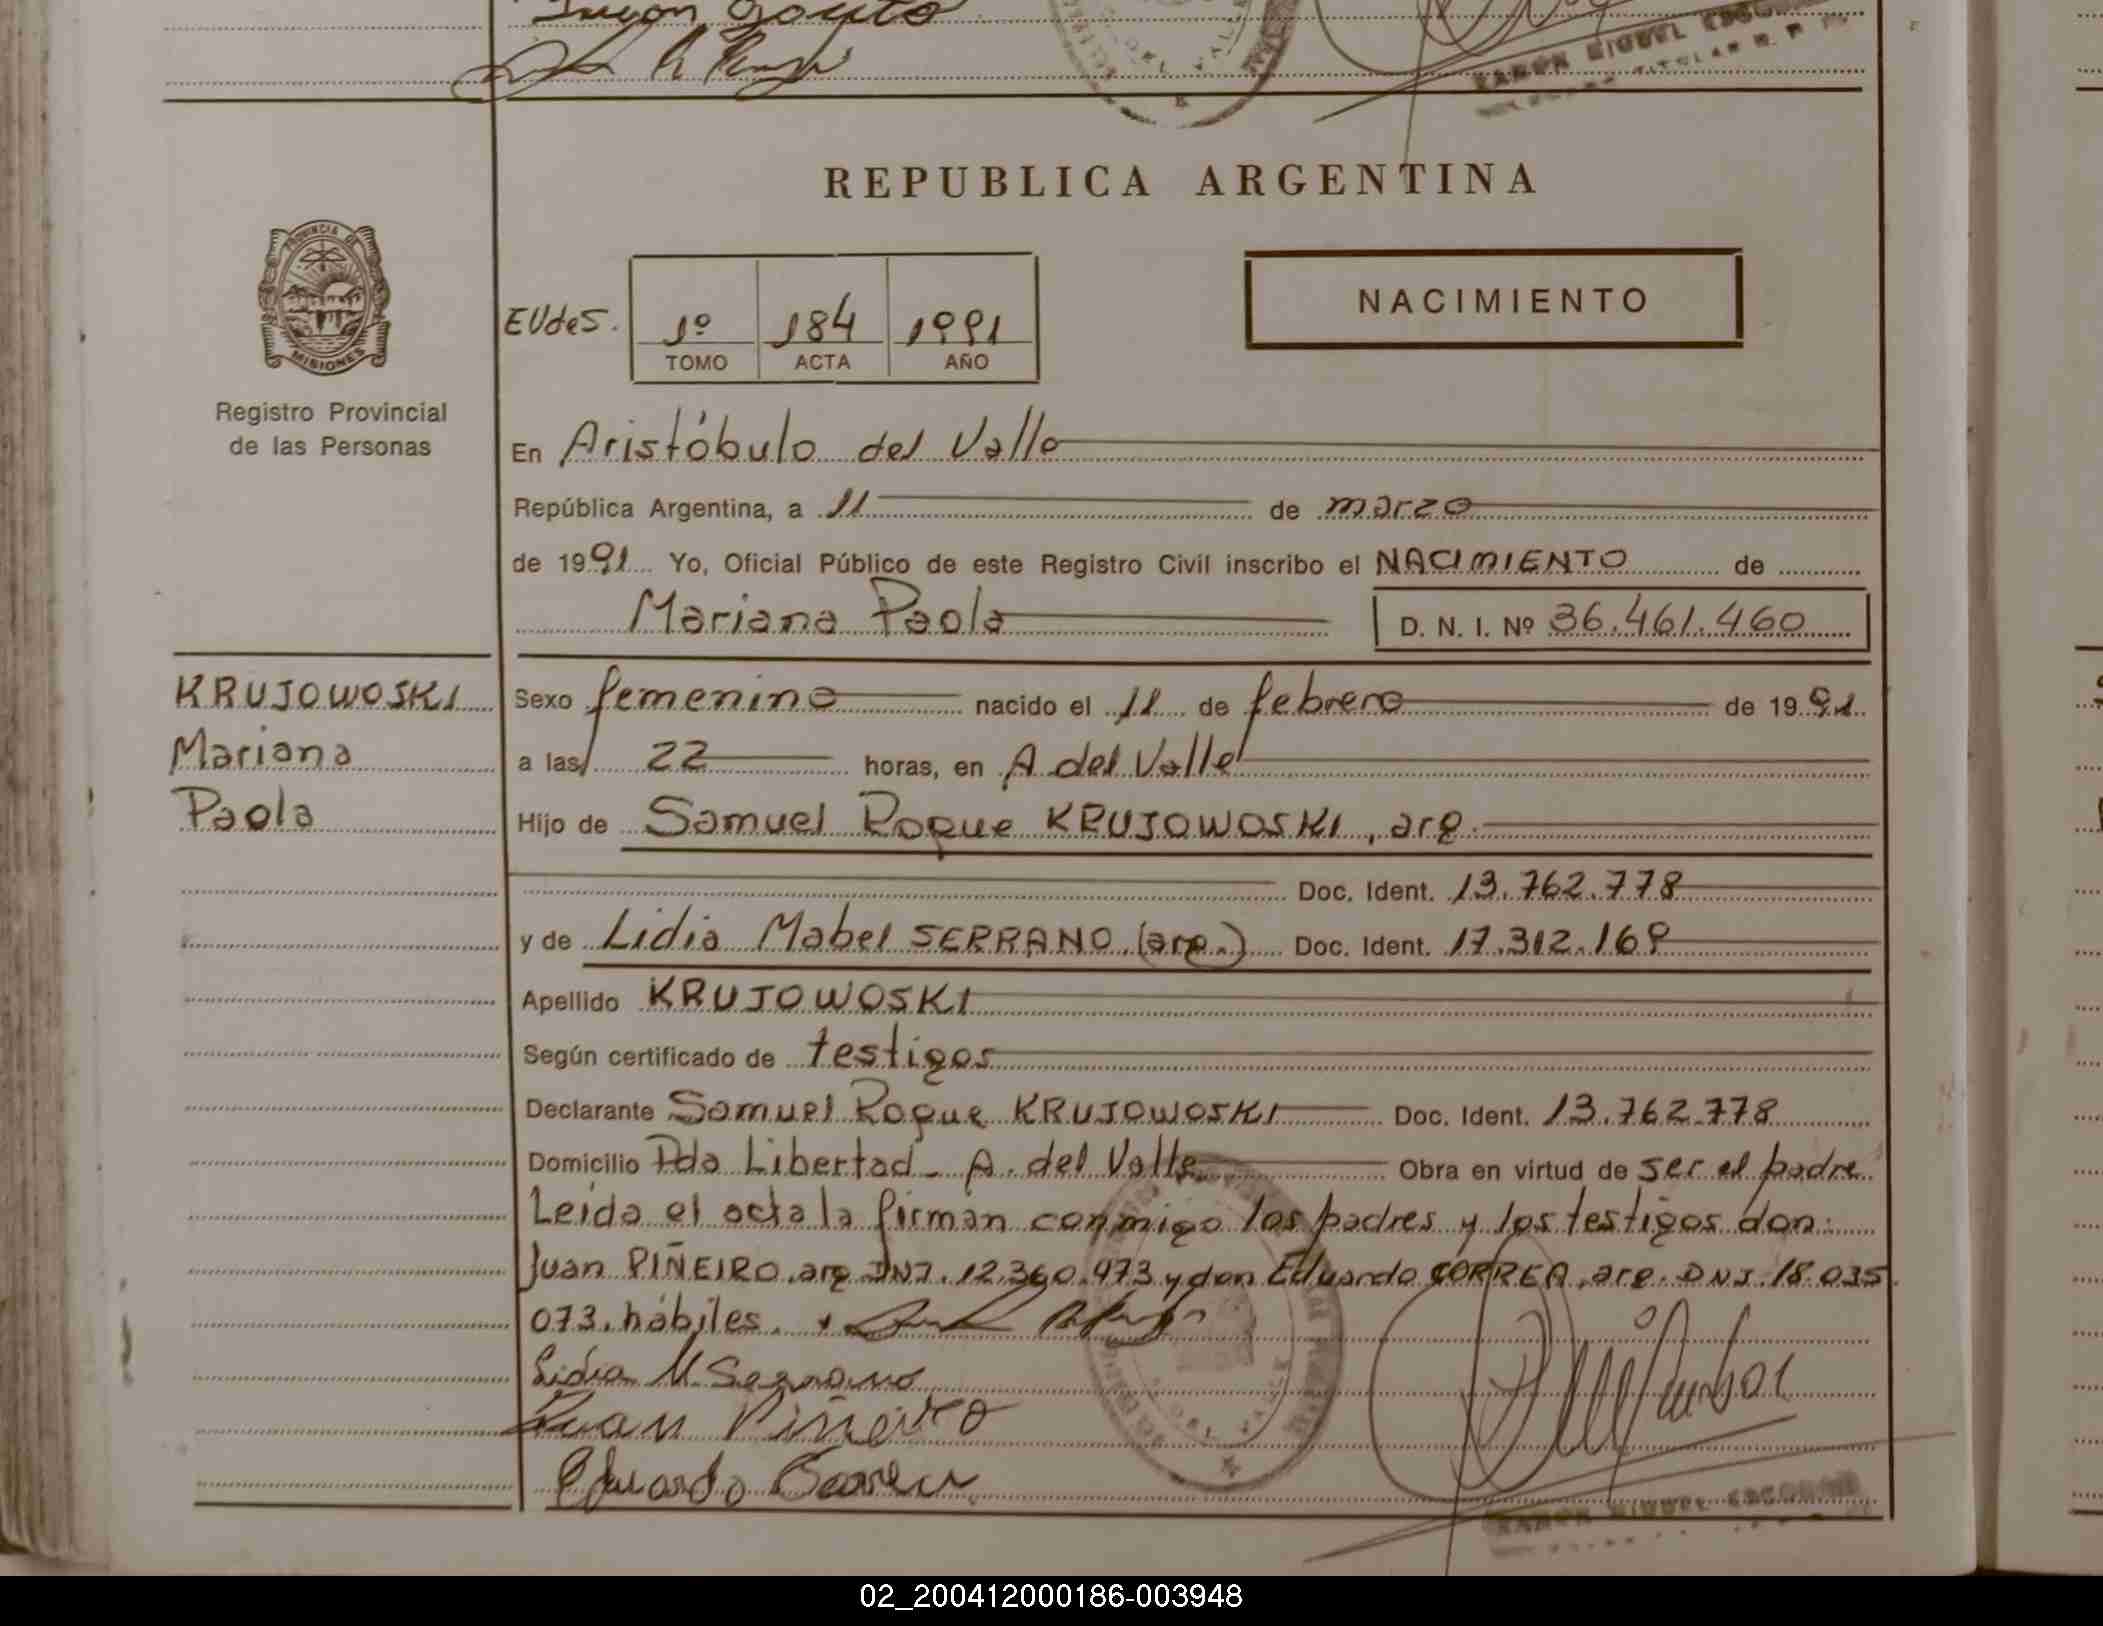 REPUBLICA ARGENTINA
PROVINCIA DE
MISIONES
Registro Provincial
de las Personas
EUdeS.
1º 184 1991
TOMO ACTA AÑO
NACIMIENTO
En Aristóbulo del Valle
República Argentina, a 11 de marzo
de 1991 Yo, Oficial Público de este Registro Civil inscribo el NACIMIENTO de
Mariana Paola D. N. I. Nº 36.461.460
KRUJOWOSKI
Mariana
Paola
Sexo femenino nacido el 11 de febrero de 1991
a las 22 horas, en A del Valle
Hijo de Samuel Roque KRUJOWOSKI, arg.
Doc. Ident. 13.762.778
y de Lidia Mabel SERRANO (arg.) Doc. Ident. 17.312.169
Apellido KRUJOWOSKI
Según certificado de testigos
Declarante Samuel Roque KRUJOWOSKI Doc. Ident. 13.762.778
Domicilio Pda Libertad - A. del Valle Obra en virtud de ser el padre
Leida el acta la firman conmigo los padres y los testigos don:
Juan PIÑEIRO, arg DNI. 12.360.473 y don Eduardo CORREA, arg. DNI. 18.035.
073. hábiles.
Lidia M Serrano
Juan Piñeiro
Eduardo Correa
RAMON MIGUEL ESCOBAR
02_200412000186-003948